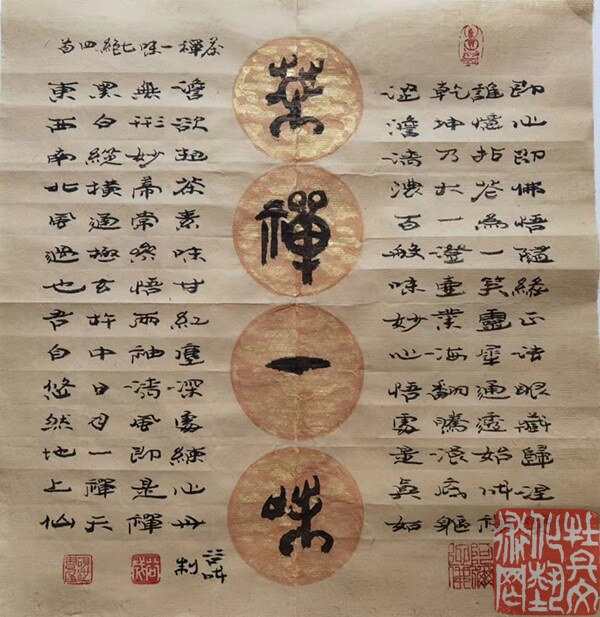 茶禪一味七絶四首
茶禪一味
即心即佛悟隨緣正法眼藏歸涅
誰憶拈花為一笑靈犀通透始成禪
乾坤乃大一澄壺業海翻騰浪底軀
澀澹清濃百般味妙心悟處是真如
澹飯粗茶素味甘紅塵深處練心丹
無形妙蒂常參悟兩袖清風即是禪
黑白縱橫通極玄枰中日月一禪天
東西南北風過也吾自悠然地上仙
制